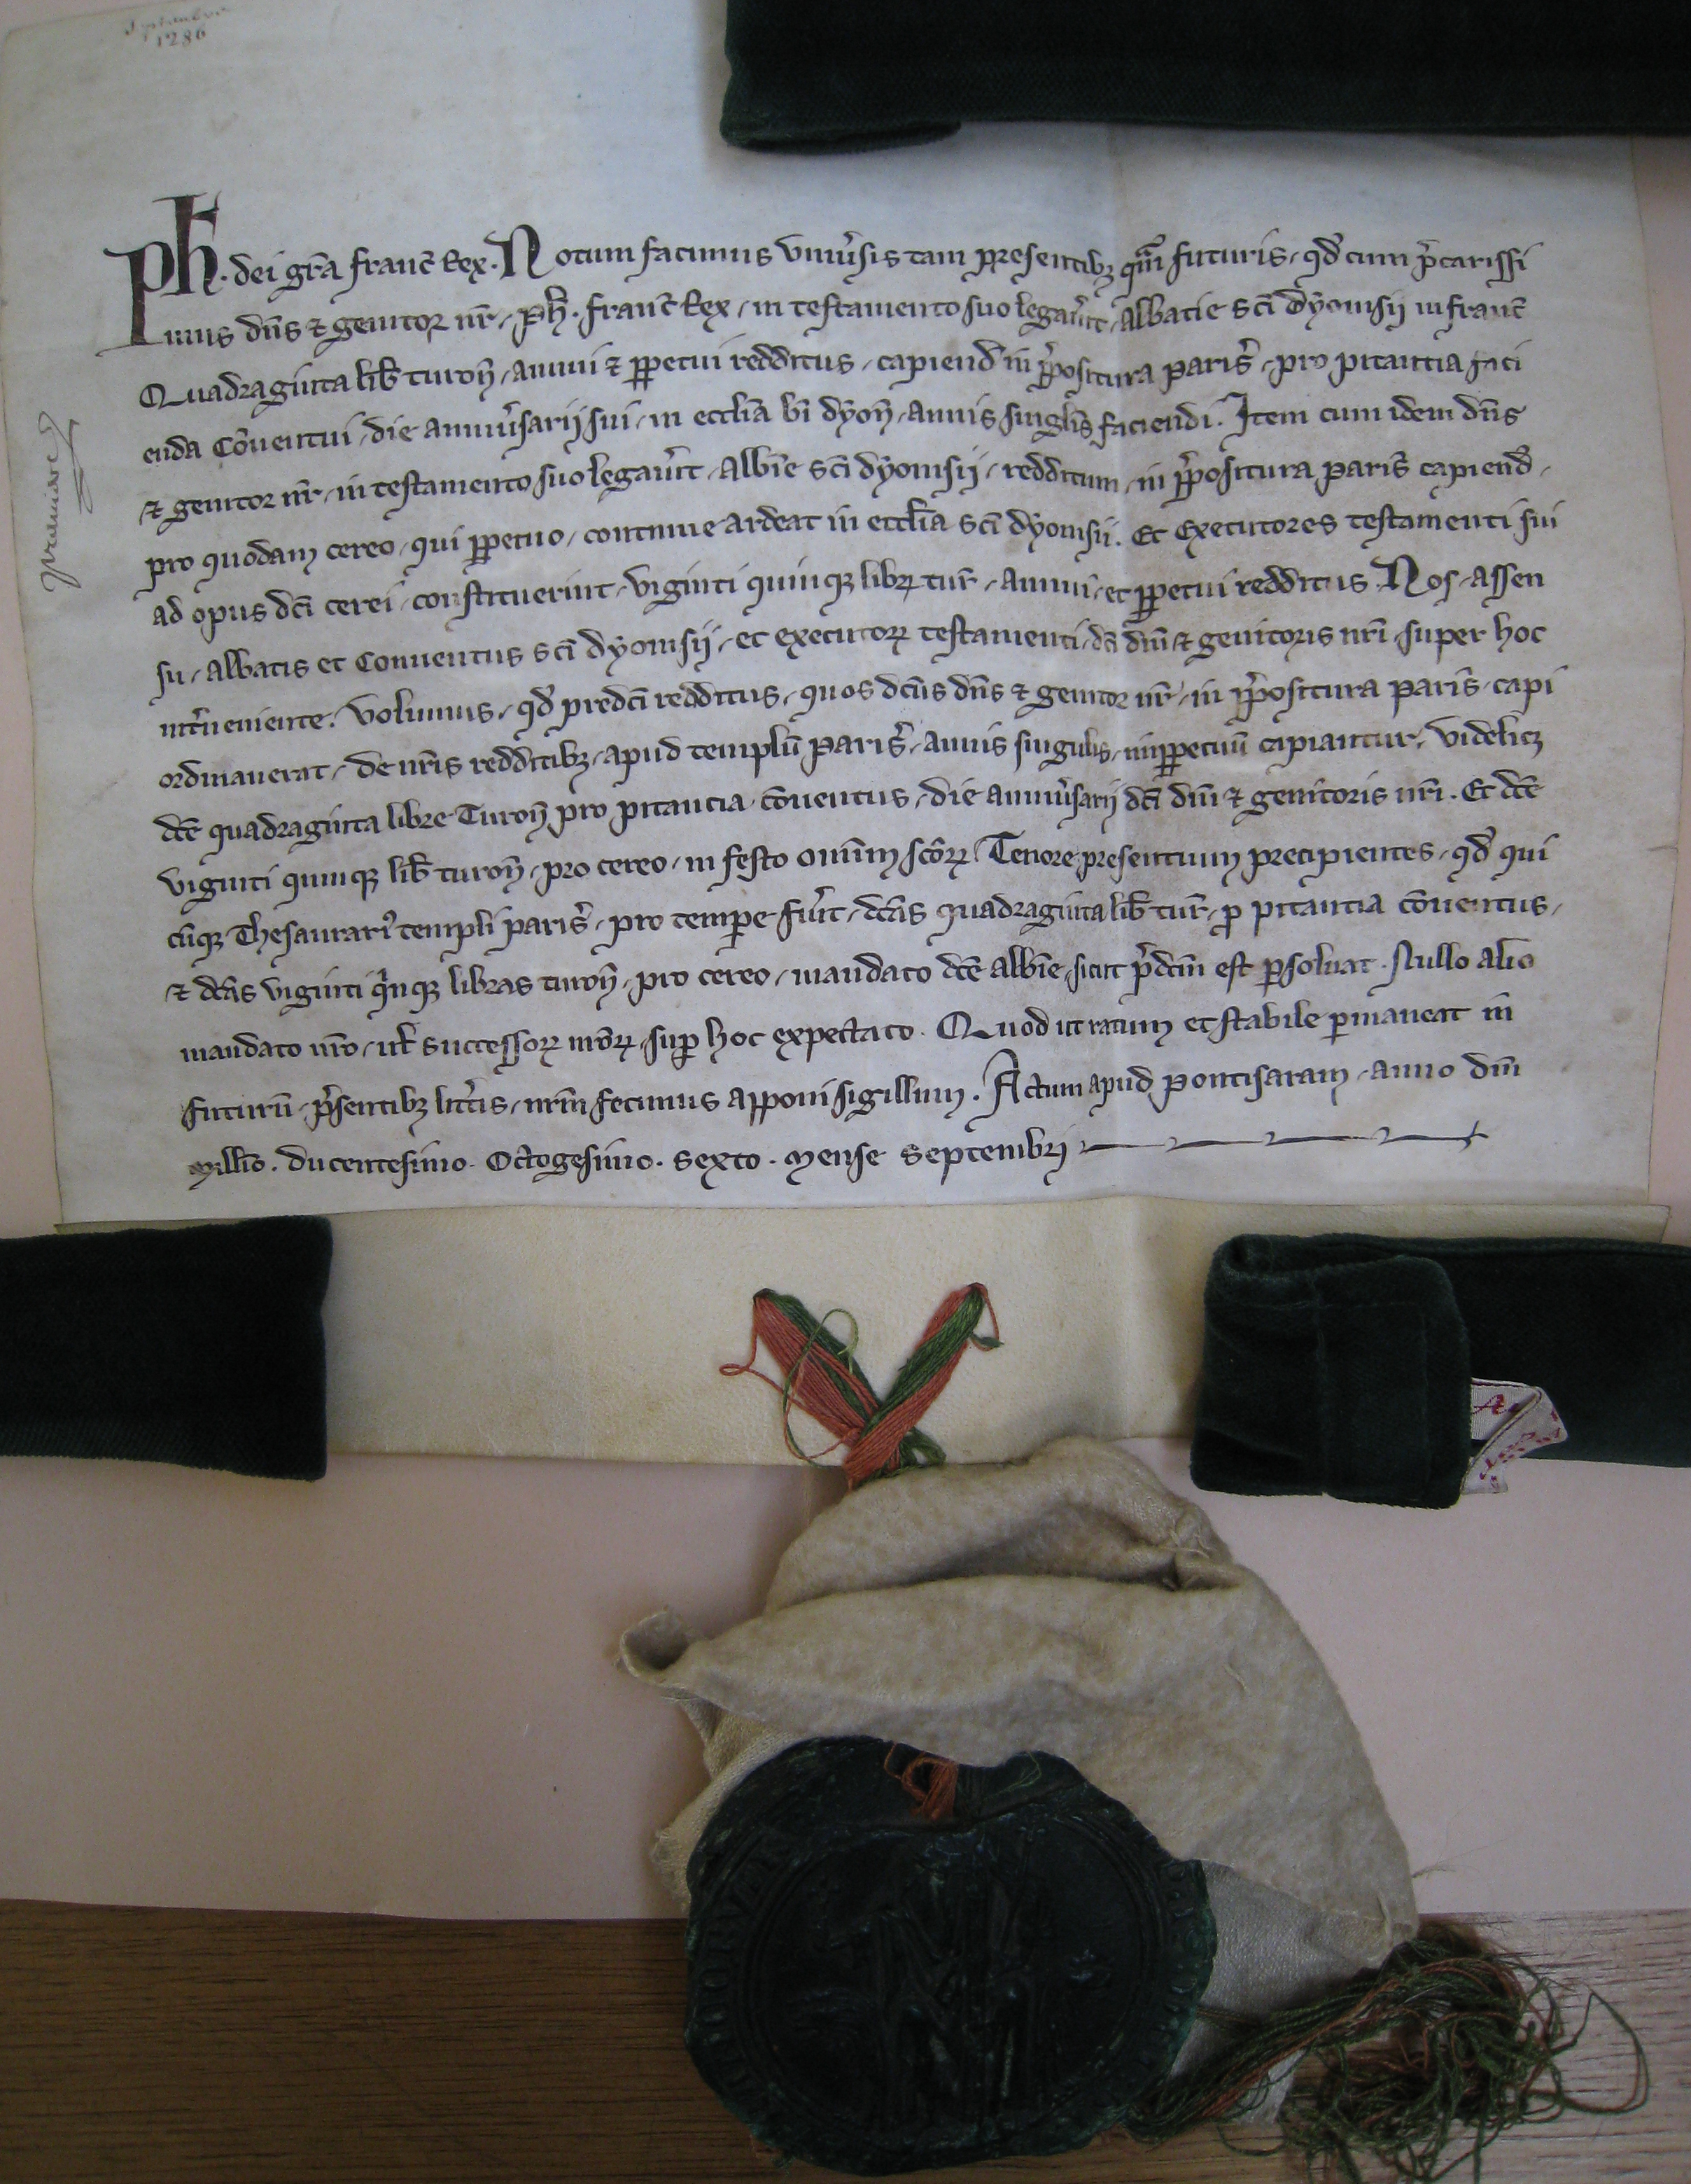 Septembre
1286
Ph. dei gr̃a franc̃ Rex. Notum facimus Vniu̾sis tam presentibꝫ qua̾m futuris, qd̾ cum p̾carissi
mus dñs ⁊ genitor nr̃, Ph̾. franc̃ Rex, in testamento suo legau̾it, Abbatie sc̃i dyonisii in franc̃
Quadraginta lib̾ turoñ, annui ⁊ ꝑpetui redditus, capiend̾ in p̾positura paris̾, pro pitantia faci
enda Co̾uentui, die anniu̾sarij sui, in eccl̃ia bi̾ dyoñ, annis singl̃is faciendi. Item cum idem dñs
⁊ genitor nr̃, in testamento suo legau̾it, Abbi̾e sc̃i dyonisii, redditum, in p̾positura paris̾ capiend̾,
pro quodam cereo, qui ꝑpetuo, continue ardeat in eccl̃ia sc̃i dyonisii. Et Executores testamenti sui
ad opus dc̃i cerei, constituerint, viginti quinqꝫ libꝝ tur̃, annui, et ꝑpetui redditus. Nos, assen
su, abbatis et Conuentus sc̃i dyonisii, et executorꝝ testamenti, dc̃i dñi ⁊ genitoris nr̃i, super hoc
int̾ueniente. Volumus, qd̾ predc̃i redditus, quos dc̃us dñs ⁊ genitor nr̃, in p̾positura paris̾, capi
ordinauerat, de nr̃is redditibꝫ, apud templu̾ paris̾, annis singulis, inꝑpetuu̾ capiantur, videlicꝫ
dc̃e quadraginta libre Turoñ pro pitancia co̾uentus, die anniu̾sarij dc̃i dñi ⁊ genitoris nr̃i. Et dc̃e
viginti quinqꝫ lib̾ turoñ, pro cereo, in festo omniu̾m sc̃orꝝ. Tenore presentium precipientes, qd̾ qui
cu̾qꝫ Thesaurariꝰ templi paris̾, pro tempe fu̾it, dc̃as quadraginta lib̾ tur̃, ꝓ pitantia co̾uentus,
⁊ dc̃as viginti q̾nqꝫ libras turoñ, pro cereo, mandato dc̃e abbi̾e, sicut p̾dc̃m est ꝑsoluat. Nullo alio
mandato nr̃o, ul̾ successorꝝ nr̃orꝝ, suꝑ hoc expectato. Quod ut ratum et stabile ꝑmaneat in
futuru̾, p̾sentibꝫ litt̾is, nr̃m fecimus apponi sigillum. Actum apud pontisaram, anno dñi
Millio̾. ducentesimo. Octogesimo. sexto. mense septembrj